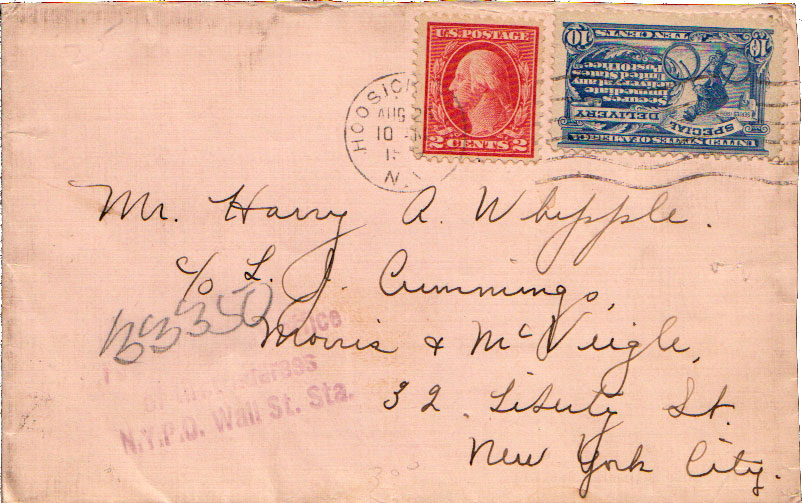 U.S. POSTAGE
2 CENTS 2
10 TEN CENTS 10
Secures
Immediate
Delivery at any
United States
Post Office
SPECIAL
DELIVERY
UNITED STATES OF AMERICA
HOOSICK
AUG
10
N.Y.
Mr. Harry A. Whipple.
c/o L. J. Cummings,
Morris & McVeigle,
32 Liberty St.
New York City.
33350
N.Y.P.O. Wall St. Sta.